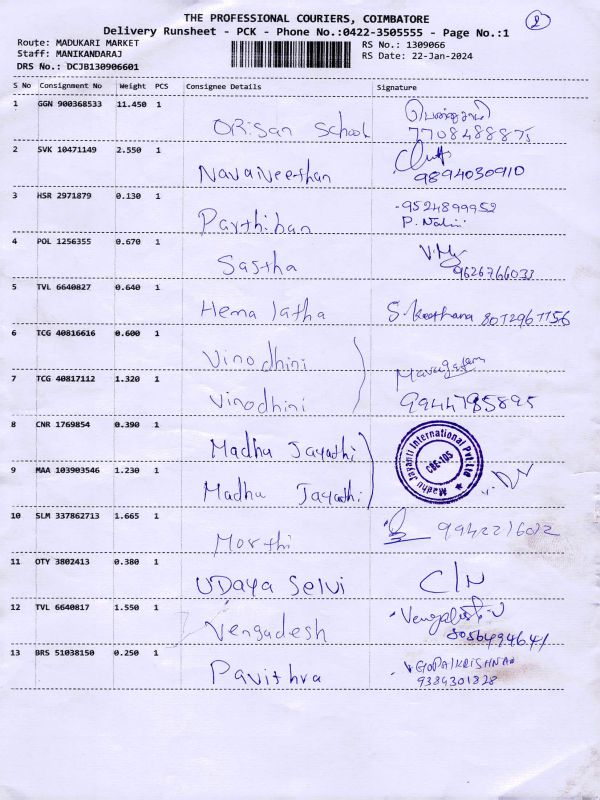 THE PROFESSIONAL COURIERS, COIMBATORE
2
Delivery Runsheet - PCK - Phone No.:0422-3505555 - Page No.:1
Route: MADUKARI MARKET
RS No.: 1309066
Staff: MANIKANDARAJ
RS Date: 22-Jan-2024
DRS No.: DCJB130906601
S No Consignment No Weight PCS Consignee Details Signature
1 GGN 900368533 11.450 1
ORisan School
7708488875
2 SVK 10471149 2.550 1
Navaneethan
9894030910
3 HSR 2971879 0.130 1
Parthiban
9524899952
P. Nalini
4 POL 1256355 0.670 1
Sastha
9626766033
5 TVL 6640827 0.640 1
Hema latha S. Keethana 8072967756
6 TCG 40816616 0.600 1
Vinodhini
7 TCG 40817112 1.320 1
Vinodhini 9944785895
8 CNR 1769854 0.390 1
Madhu Jayathi
Madhu Jayanti International Pvt.Ltd
CBE-105
9 MAA 103903546 1.230 1
Madhu Jayathi
10 SLM 337862713 1.665 1
Morthi 9942216012
11 OTY 3802413 0.380 1
UDaya Selvi C/N
12 TVL 6640817 1.550 1
Vengadesh
8056494641
13 BRS 51038150 0.250 1
Pavithra
V GOPALKRISHNA
9384301828